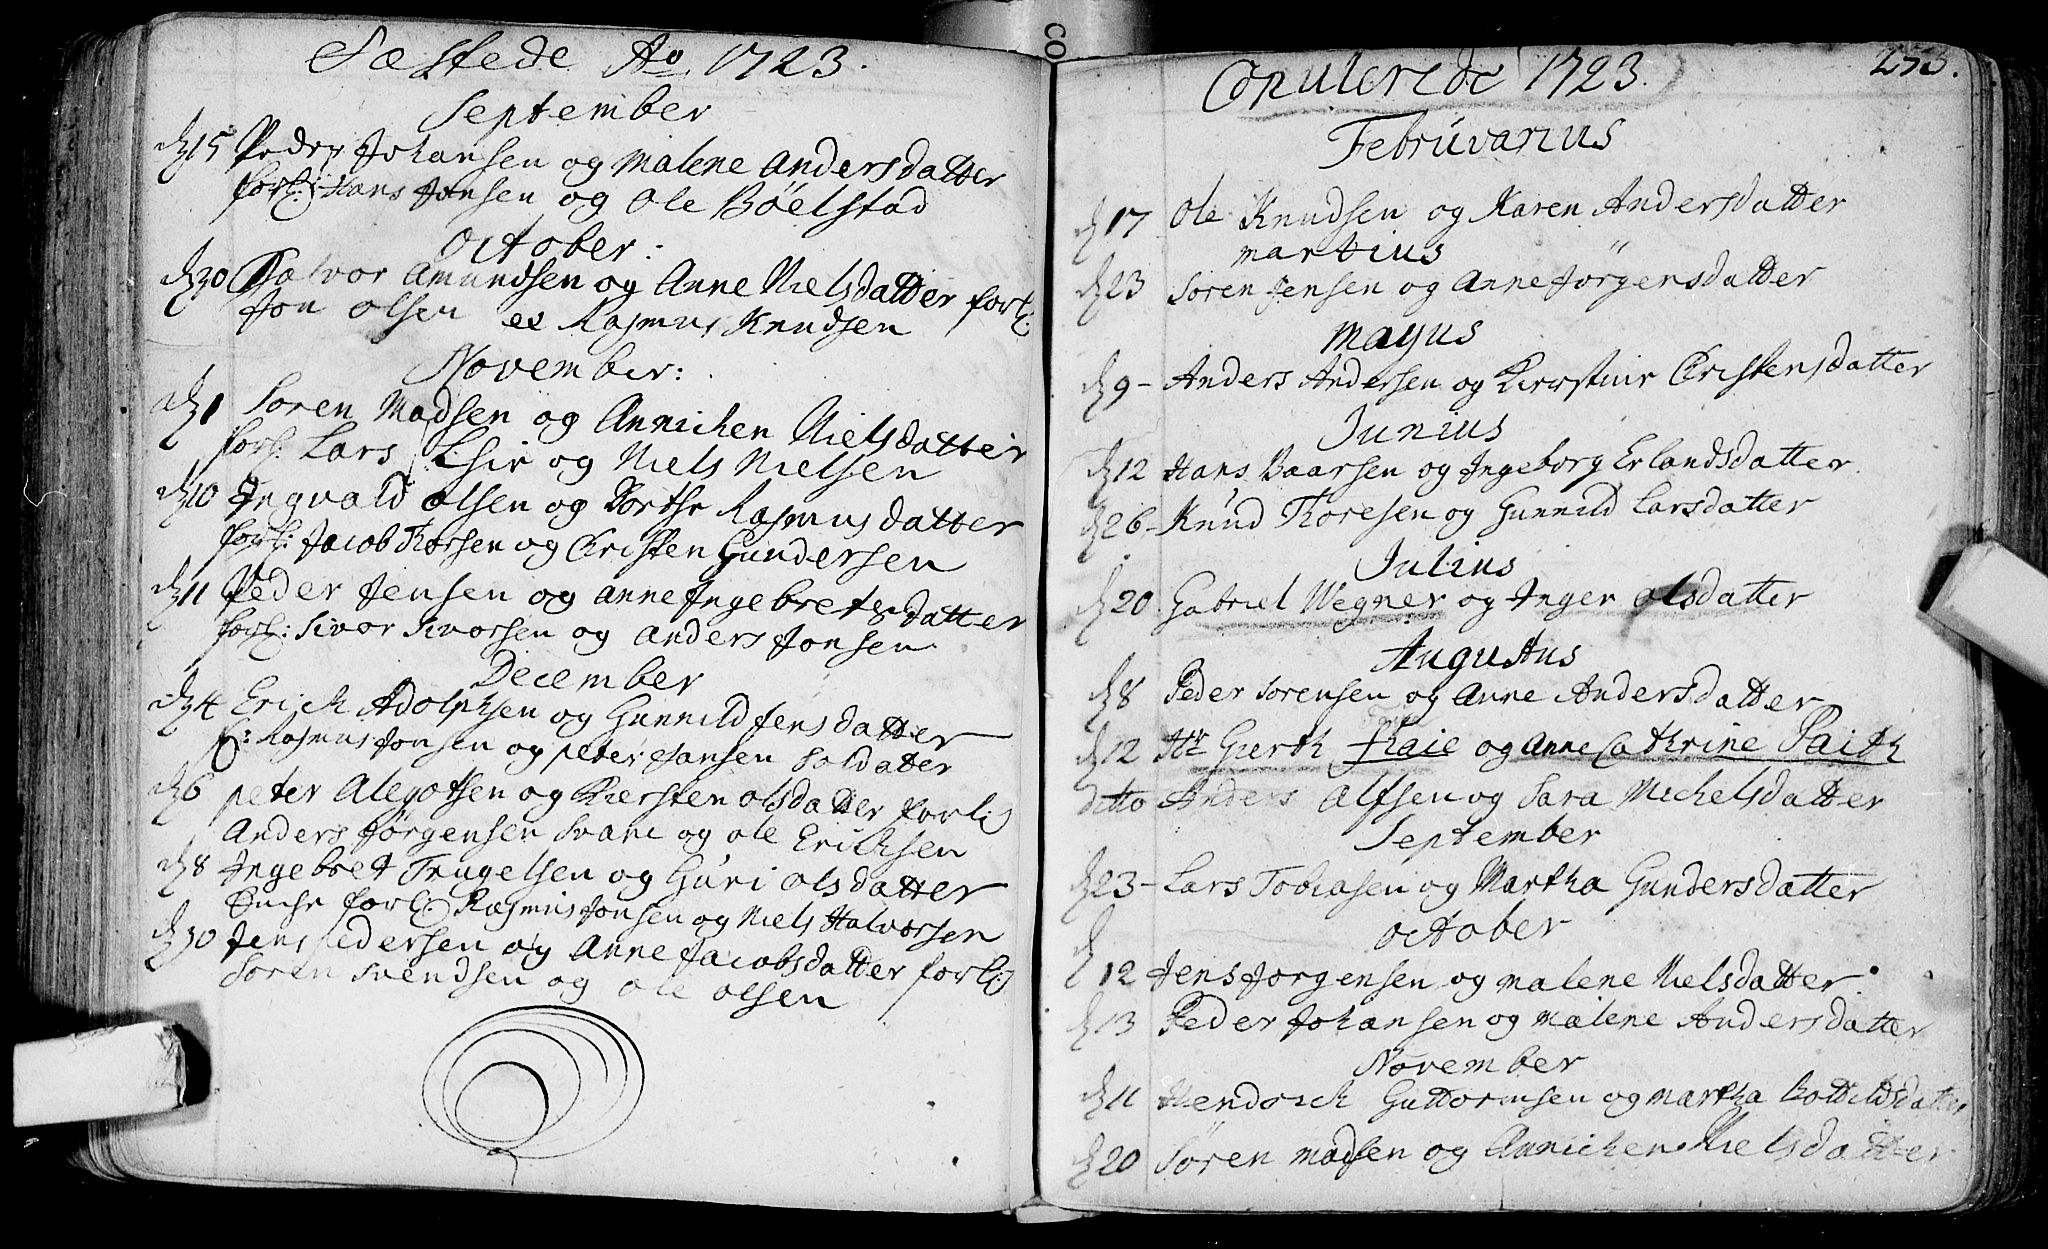 Fæstede Ao 1723.
September
d 15 Peder Johansen og Malene Andersdatter
forl: Hans Jonsen og Ole Böelstad
October:
d 30 Halvor Amundsen og Anne Nielsdatter forl:
Jon olsen es Rasmus Knudsen
November:
d 1 Soren Madsen og Annichen Nielsdatter
forl: Lars og Niels Nielsen
d 10 Ingvald olsen og Dorthe Rasmusdatter
forl: Jacob Thorsen og Christen Gundersen
d 11 Peder Jensen og Anne Ingebretsdatter
forl: Sivor Sivorsen og Anders Jonsen
December
d 4 Erich Adolphsen og Gunnild Jensdatter
f: Rasmus Jonsen og peter Hansen Soldatter
d 6 peter Alegotsen og Kiersten olsdatter forl:
Anders Jørgensen Svane og ole Ericksen
d 8 Ingebret Trugelsen og Guri olsdatter
Enche forl: Rasmus Jonsen og Niels Halvorsen
d 30 Jens pedersen og Anne Jacobsdatter forl:
Soren Svendsen og ole olsen
CO
Copulerede 1723.
253.
Februvarius
d 17 Ole Knudsen og Karen Andersdatter
martius
d 23 Soren Jensen og Anne Jörgensdatter
Mayus
d 9 - Anders Andersen og Kirstine Christensdatter
Junius
d 12 Hans Baarsen og Ingeborg Erlandsdatter.
d 26 - Knud Thoresen og Gunnild Larsdatter
Julius
d 20 Gabriel Wegner og Inger olsdatter
Augustus
d 8 Peder Sorensen og Anne Andersdatter
d 12 Hr Gierth og Anne Cathrine Paith
ditto Anders Alfsen og Sara Michelsdatter
September
d 23 - Lars Tobiasen og Martha Gundersdatter
October
d 12 Jens Jorgensen og malene Nielsdatter.
d 13 Peder Johansen og Malene Andersdatter
November
d 11 Hendrick Guttormsen og Martha Bottildsdatter
d 20 Søren Madsen og Annichen Nielsdatter